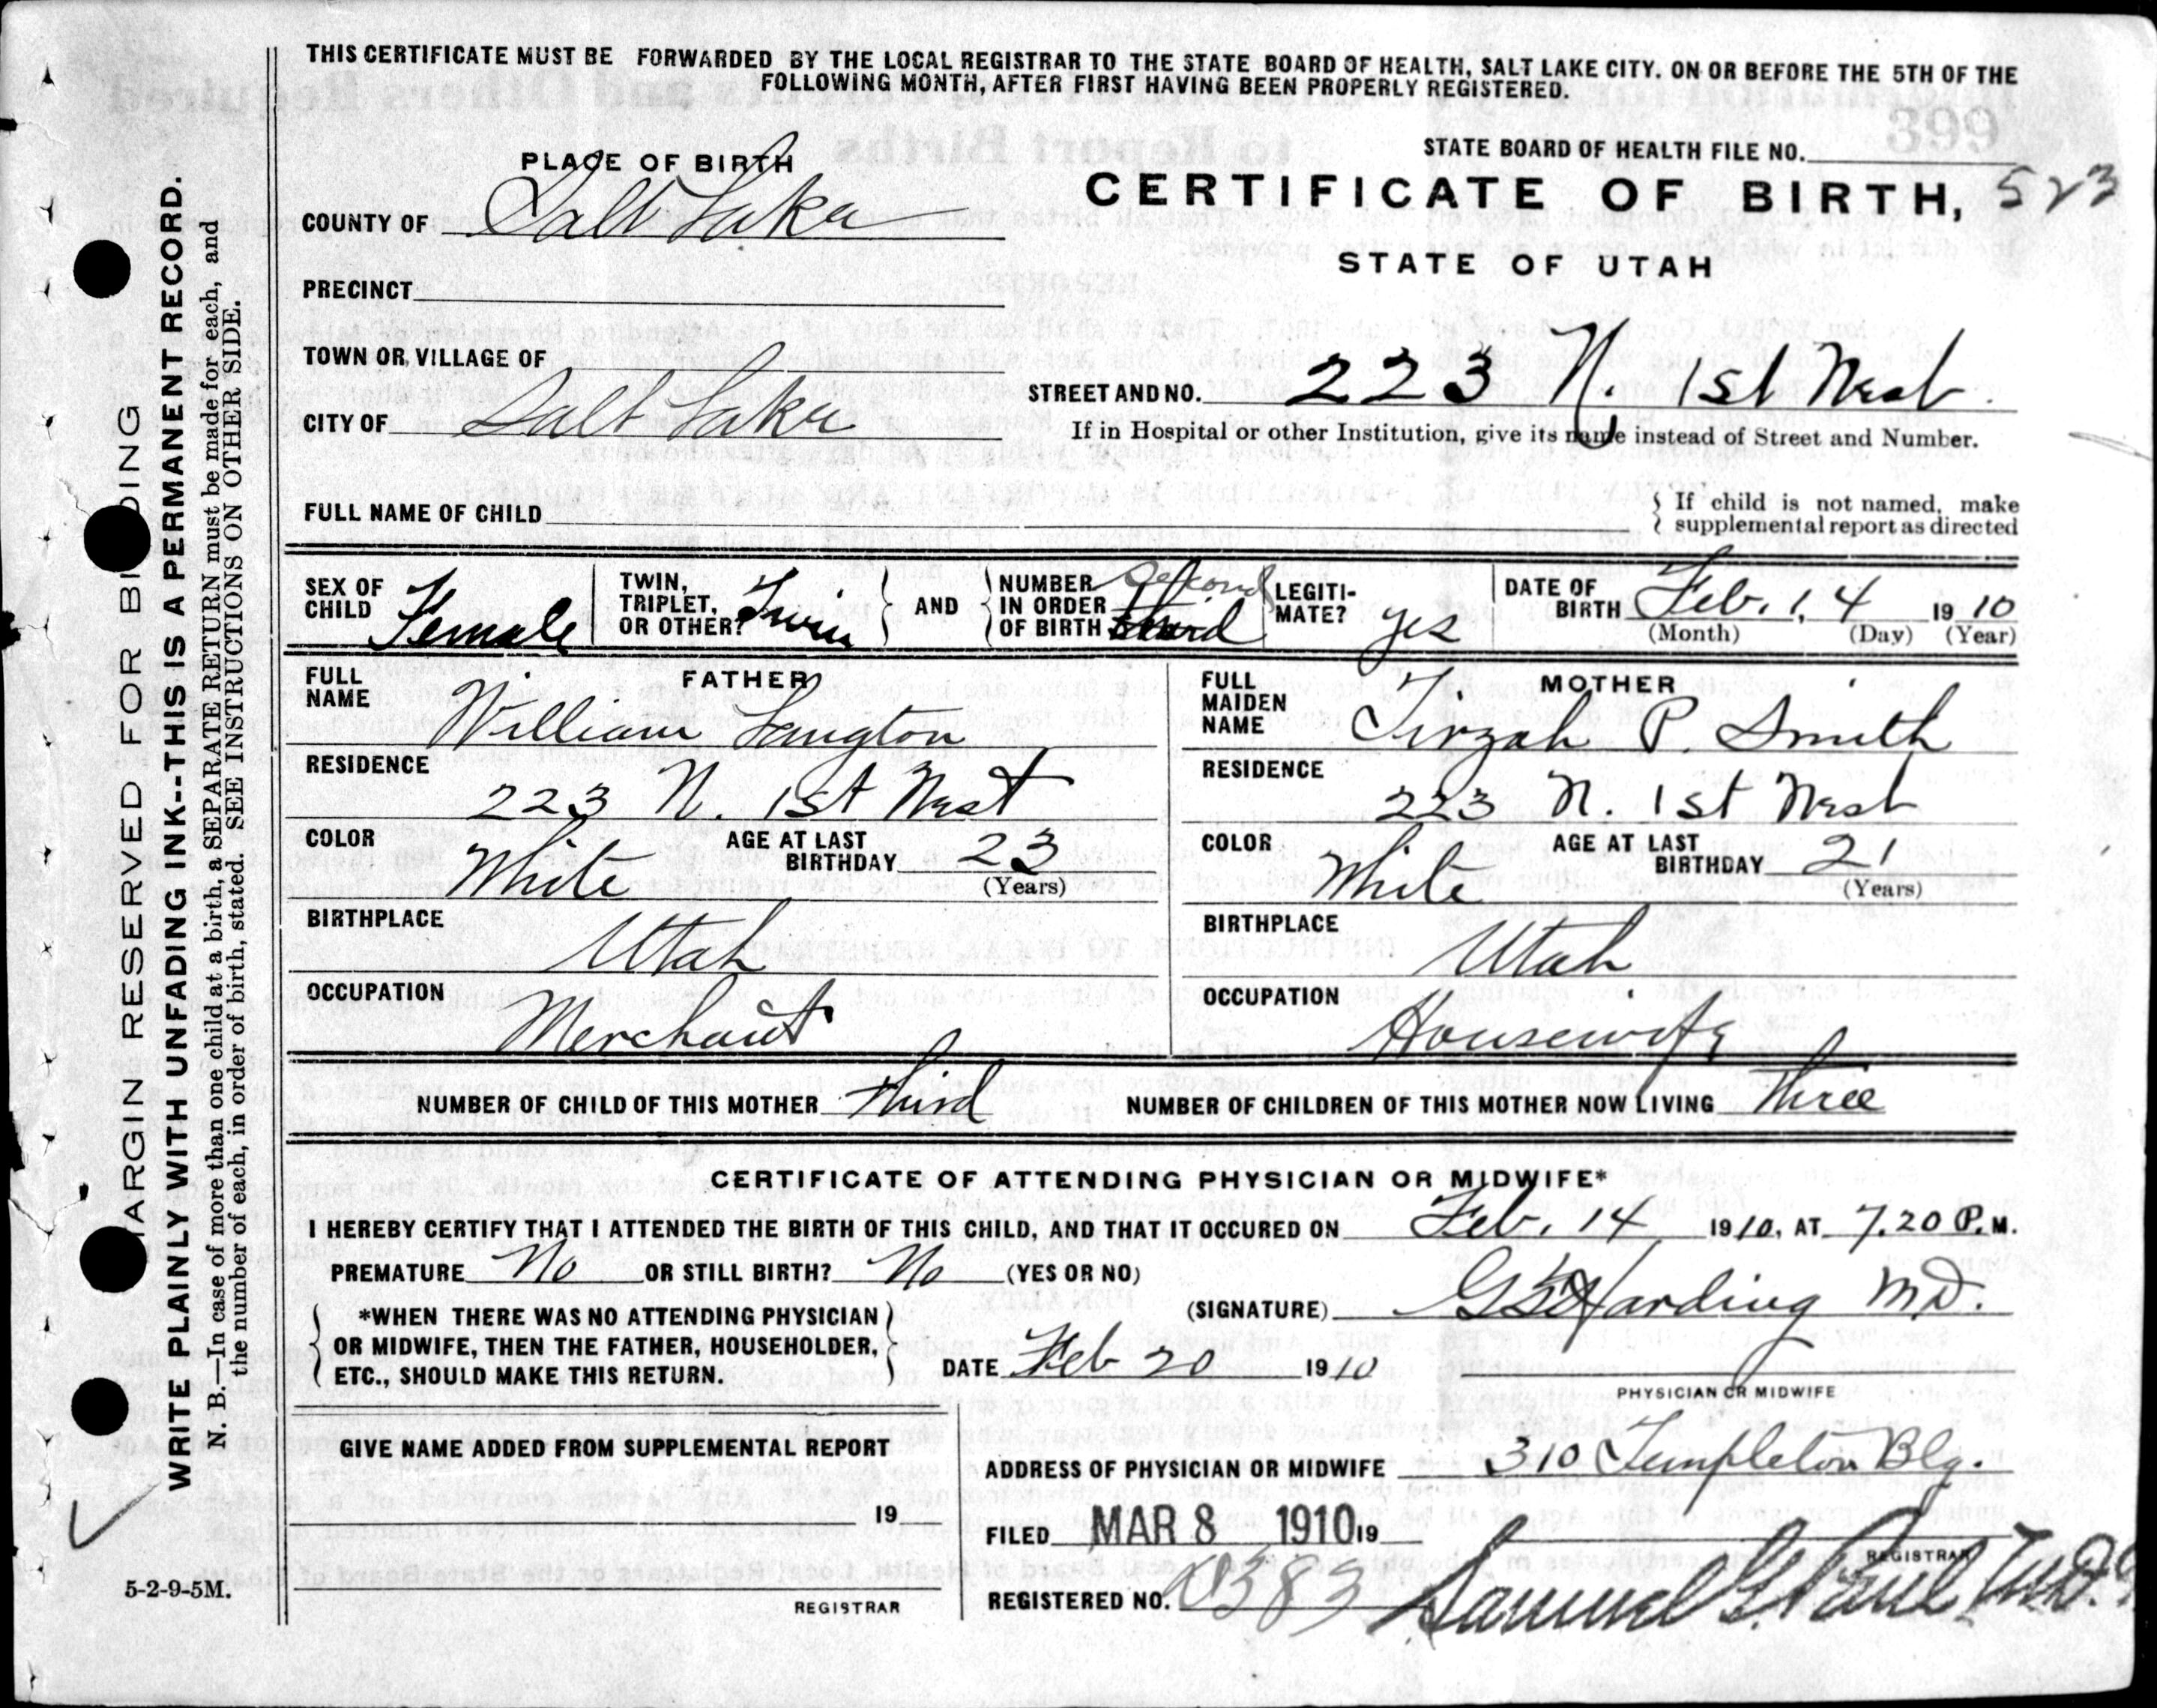 THIS CERTIFICATE MUST BE FORWARDED BY THE LOCAL REGISTRAR TO THE STATE BOARD OF HEALTH, SALT LAKE CITY. ON OR BEFORE THE 5TH OF THE
FOLLOWING MONTH, AFTER FIRST HAVING BEEN PROPERLY REGISTERED.
399
STATE BOARD OF HEALTH FILE NO.
PLACE OF BIRTH
CERTIFICATE OF BIRTH, 523
STATE OF UTAH
COUNTY OF Salt Lake
PRECINCT
TOWN OR VILLAGE OF
STREET AND NO. 223 N. 1st West
CITY OF Salt Lake
If in Hospital or other Institution, give its name instead of Street and Number.
FULL NAME OF CHILD
If child is not named, make
supplemental report as directed
SEX OF CHILD Female
TWIN, TRIPLET, OR OTHER? Twin
AND
NUMBER IN ORDER OF BIRTH Second third
LEGITIMATE? yes
DATE OF BIRTH Feb. 14 1910
(Month) (Day) (Year)
FATHER
FULL NAME William Langton
RESIDENCE 223 N. 1st West
COLOR White
AGE AT LAST BIRTHDAY 23
(Years)
BIRTHPLACE Utah
OCCUPATION Merchant
MOTHER
FULL MAIDEN NAME Tirzah P. Smith
RESIDENCE 223 N. 1st West
COLOR White
AGE AT LAST BIRTHDAY 21
(Years)
BIRTHPLACE Utah
OCCUPATION Housewife
NUMBER OF CHILD OF THIS MOTHER third
NUMBER OF CHILDREN OF THIS MOTHER NOW LIVING three
CERTIFICATE OF ATTENDING PHYSICIAN OR MIDWIFE*
I HEREBY CERTIFY THAT I ATTENDED THE BIRTH OF THIS CHILD, AND THAT IT OCCURED ON Feb. 14 1910, AT 7.20 P.M.
PREMATURE No OR STILL BIRTH? No (YES OR NO)
*WHEN THERE WAS NO ATTENDING PHYSICIAN
OR MIDWIFE, THEN THE FATHER, HOUSEHOLDER,
ETC., SHOULD MAKE THIS RETURN.
(SIGNATURE) Harding M.D.
DATE Feb 20 1910
PHYSICIAN OR MIDWIFE
GIVE NAME ADDED FROM SUPPLEMENTAL REPORT
19
REGISTRAR
ADDRESS OF PHYSICIAN OR MIDWIFE 310 Templeton Blg.
FILED MAR 8 1910 19
REGISTRAR
REGISTERED NO. 383
Samuel G. Paul, M.D.
MARGIN RESERVED FOR BINDING
WRITE PLAINLY WITH UNFADING INK--THIS IS A PERMANENT RECORD.
N. B.—In case of more than one child at a birth, a SEPARATE RETURN must be made for each, and
the number of each, in order of birth, stated. SEE INSTRUCTIONS ON OTHER SIDE.
5-2-9-5M.